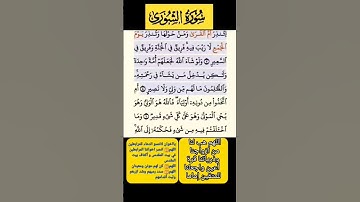 سُورَةُ الشُّورَىٰ
لِّتُنذِرَ أُمَّ الْقُرَىٰ وَمَنْ حَوْلَهَا وَتُنذِرَ يَوْمَ
الْجَمْعِ لَا رَيْبَ فِيهِ فَرِيقٌ فِي الْجَنَّةِ وَفَرِيقٌ فِي
السَّعِيرِ ۝ وَلَوْ شَاءَ اللَّهُ لَجَعَلَهُمْ أُمَّةً وَاحِدَةً
وَلَٰكِن يُدْخِلُ مَن يَشَاءُ فِي رَحْمَتِهِ
وَالظَّالِمُونَ مَا لَهُم مِّن وَلِيٍّ وَلَا نَصِيرٍ ۝ أَمِ
اتَّخَذُوا مِن دُونِهِ أَوْلِيَاءَ فَاللَّهُ هُوَ الْوَلِيُّ وَهُوَ
يُحْيِي الْمَوْتَىٰ وَهُوَ عَلَىٰ كُلِّ شَيْءٍ قَدِيرٌ ۝ وَمَا
اخْتَلَفْتُمْ فِيهِ مِن شَيْءٍ فَحُكْمُهُ إِلَى اللَّهِ
اللهم هب لنا
من أزواجنا
وذرياتنا قرة
أعين واجعلنا
للمتقين إماما